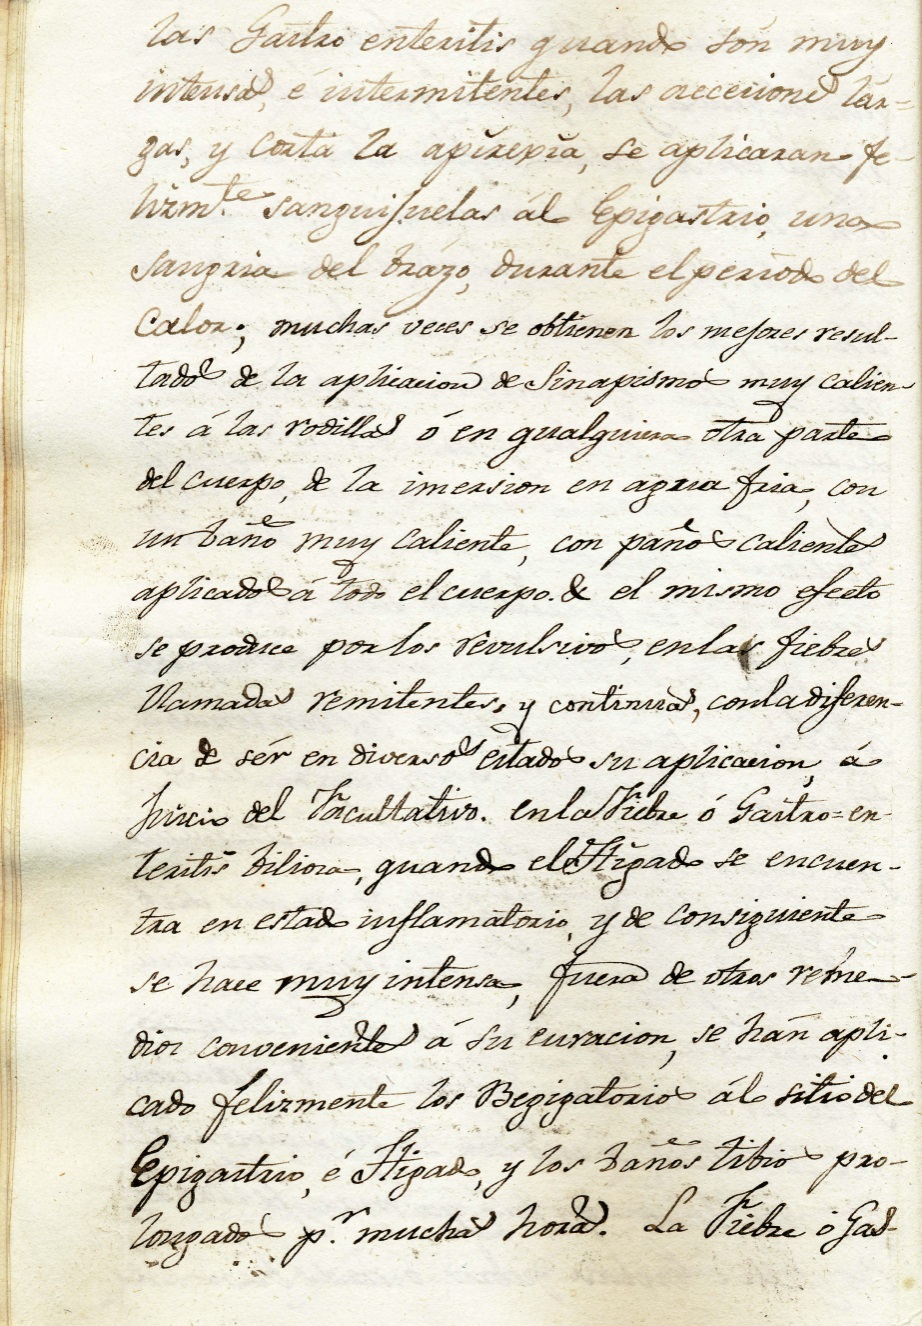 las Gastro enteritis quando són muy
intensas, é intermitentes, las accesiones lár-
gas, y corta la apirexia, se aplicaran fe-
lizm.te sanguijuelas ál Epigastrio, una
sangria del brázo, durante el periodo del
Calor; muchas veces se obtienen los mejores resul-
tados de la aplicacion de Sinapismos muy calien-
tes á las rodillas ó en qualquiera otra parte
del cuerpo, de la imersion en agua fria, con
un baño muy caliente, con paños calientes
aplicados á todo el cuerpo. & el mismo efecto
se produce por los revulsivos, en las fiebres
llamadas remitentes, y continuas, con la diferen-
cia de sér en diversos estados su aplicacion, á
juicio del Facultativo. en la Fiebre ó Gastro=en-
teritis biliosa, quando el Higado se encuen-
tra en estado inflamatorio, y de consiguiente
se hace muy intensa, fuera de otros reme-
dios convenientes á su curacion, se hán apli-
cado felizmente los Begigatorios ál sitio del
Epigastrio, é Higado, y los baños tibios pro-
longados p.r muchas horas. La Fiebre ó Gas-